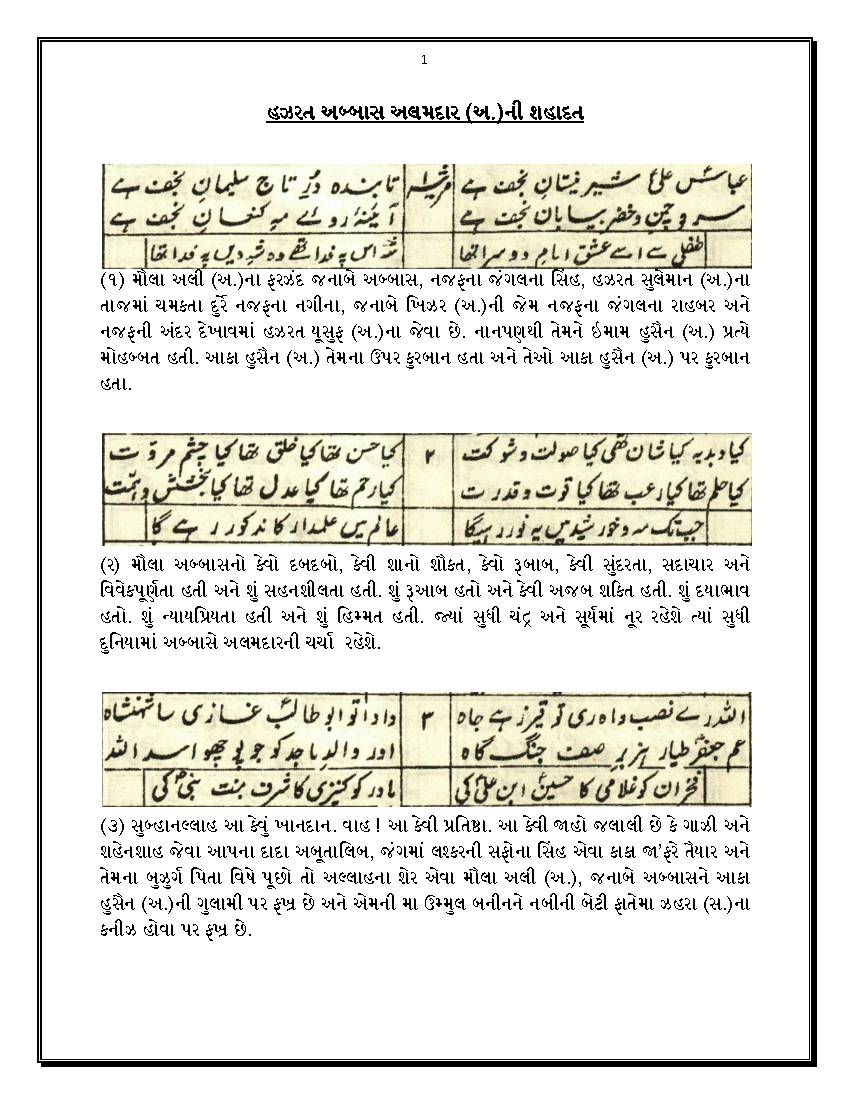 1
હઝરત અબ્બાસ અલમદાર (અ.)ની શહાદત
عباسِ علیؑ شیرِ نیستانِ نجف ہے
مرثیہ ۱
تابندہ دُرِ تاجِ سلیمانِ نجف ہے
سروِ چمن و خضرِ بیابانِ نجف ہے
آئینۂ روئے مہِ کنعانِ نجف ہے
طفلی سے اسے عشقِ امامِ دوسرا تھا
شہؑ اس پہ فدا تھے وہ شہِ دیں پہ فدا تھا
(૧) મૌલા અલી (અ.)ના ફરઝંદ જનાબે અબ્બાસ, નજફના જંગલના સિંહ, હઝરત સુલેમાન (અ.)ના
તાજમાં ચમકતા દુર્રે નજફના નગીના, જનાબે ખિઝર (અ.)ની જેમ નજફના જંગલના રાહબર અને
નજફની અંદર દેખાવમાં હઝરત યૂસુફ (અ.)ના જેવા છે. નાનપણથી તેમને ઇમામ હુસૈન (અ.) પ્રત્યે
મોહબ્બત હતી. આકા હુસૈન (અ.) તેમના ઉપર કુરબાન હતા અને તેઓ આકા હુસૈન (અ.) પર કુરબાન
હતા.
کیا دبدبہ کیا شان تھی کیا صولت و شوکت
۲
کیا حسن تھا کیا خلق تھا کیا چشمِ مروّت
کیا حلم تھا کیا رعب تھا کیا قوت و قدرت
کیا رحم تھا کیا عدل تھا کیا بخشش و ہمّت
جب تک مہ و خورشید میں یہ نور رہیگا
عالم میں علمدار کا مذکور رہے گا
(૨) મૌલા અબ્બાસનો કેવો દબદબો, કેવી શાનો શૌકત, કેવો રૂબાબ, કેવી સુંદરતા, સદાચાર અને
વિવેકપૂર્ણતા હતી અને શું સહનશીલતા હતી. શું રૂઆબ હતો અને કેવી અજબ શકિત હતી. શું દયાભાવ
હતો. શું ન્યાયપ્રિયતા હતી અને શું હિમ્મત હતી. જ્યાં સુધી ચંદ્ર અને સૂર્યમાં નૂર રહેશે ત્યાં સુધી
દુનિયામાં અબ્બાસે અલમદારની ચર્ચા રહેશે.
اللہ رے نسب واہ ری توقیر زہے جاہ
۳
دادا تو ابو طالبؑ غازی سا شہنشاہ
عم جعفرِؑ طیار ہزبرِ صفِ جنگ گاہ
اور والدِ ماجد کو جو پوچھو اسد اللہ
فخر ان کو غلامی کا حسینؑ ابنِ علیؑ کی
مادر کو کنیزی کا شرف بنتِ نبیؐ کی
(૩) સુબ્હાનલ્લાહ આ કેવું ખાનદાન. વાહ ! આ કેવી પ્રતિષ્ઠા. આ કેવી જાહો જલાલી છે કે ગાઝી અને
શહેનશાહ જેવા આપના દાદા અબૂતાલિબ, જંગમાં લશ્કરની સફોના સિંહ એવા કાકા જા'ફરે તૈયાર અને
તેમના બુઝુર્ગ પિતા વિષે પૂછો તો અલ્લાહના શેર એવા મૌલા અલી (અ.), જનાબે અબ્બાસને આકા
હુસૈન (અ.)ની ગુલામી પર ફખ્ર છે અને એમની મા ઉમ્મુલ બનીનને નબીની બેટી ફાતેમા ઝહરા (સ.)ના
કનીઝ હોવા પર ફખ્ર છે.